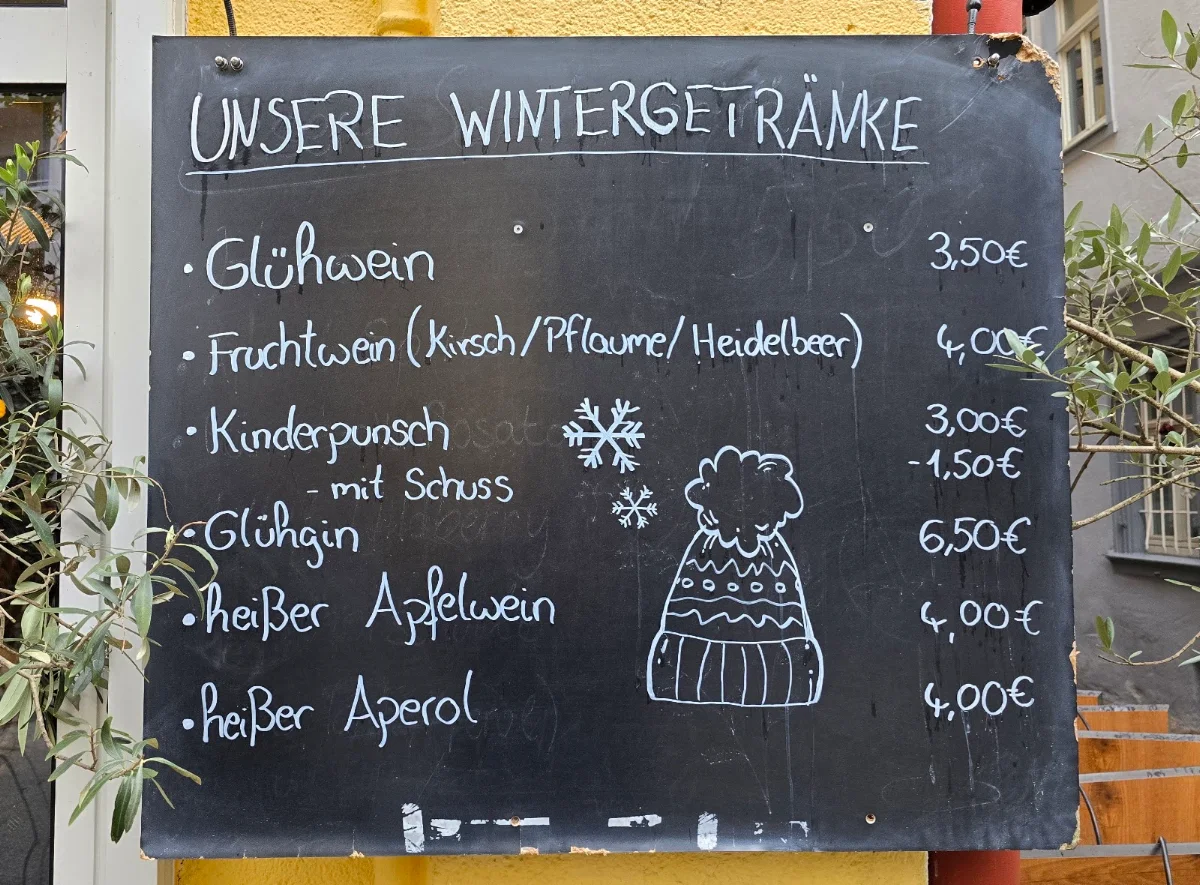 UNSERE WINTERGETRÄNKE
• Glühwein 3,50€
• Fruchtwein (Kirsch/Pflaume/Heidelbeer) 4,00€
• Kinderpunsch 3,00€
- mit Schuss -1,50€
• Glühgin 6,50€
• heißer Apfelwein 4,00€
• heißer Aperol 4,00€